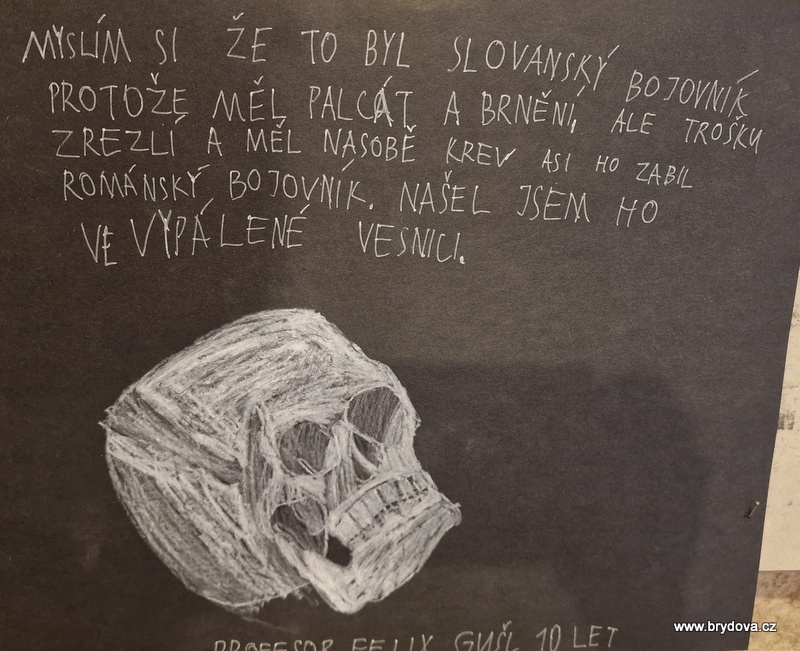 MYSLÍM SI ŽE TO BYL SLOVANSKÝ BOJOVNÍK
PROTOŽE MĚL PALCÁT A BRNĚNÍ, ALE TROŠKU
ZREZLÍ A MĚL NASOBĚ KREV ASI HO ZABIL
ROMÁNSKÝ BOJOVNÍK. NAŠEL JSEM HO
VE VYPÁLENÉ VESNICI.
PROFESOR FELIX 10 LET
www.brydova.cz